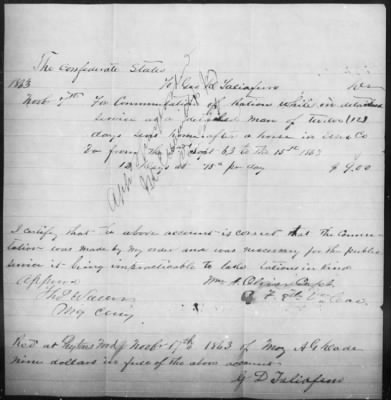 The Confederate States
To Geo D Taliaferro Dr
1863
Novb 7th For Commutation of Rations while in detached
service as a detached man of twelve (12)
days send home after a horse in Essex Co
Va from the Sept 63 to the 15th 1863
12 days at 75c per day $ 9.00
I certify that the above account is correct that the Commu-
tation was made by my order and was necessary for the public
service it being impracticable to take rations in kind
Approved Wm A. Oliver Capt.
Tho Waller Co F. 9th Va Cav.
Maj Comg
Recd at Novb 17th 1863 of Maj A G
nine dollars in full of the above account
G D Taliaferro